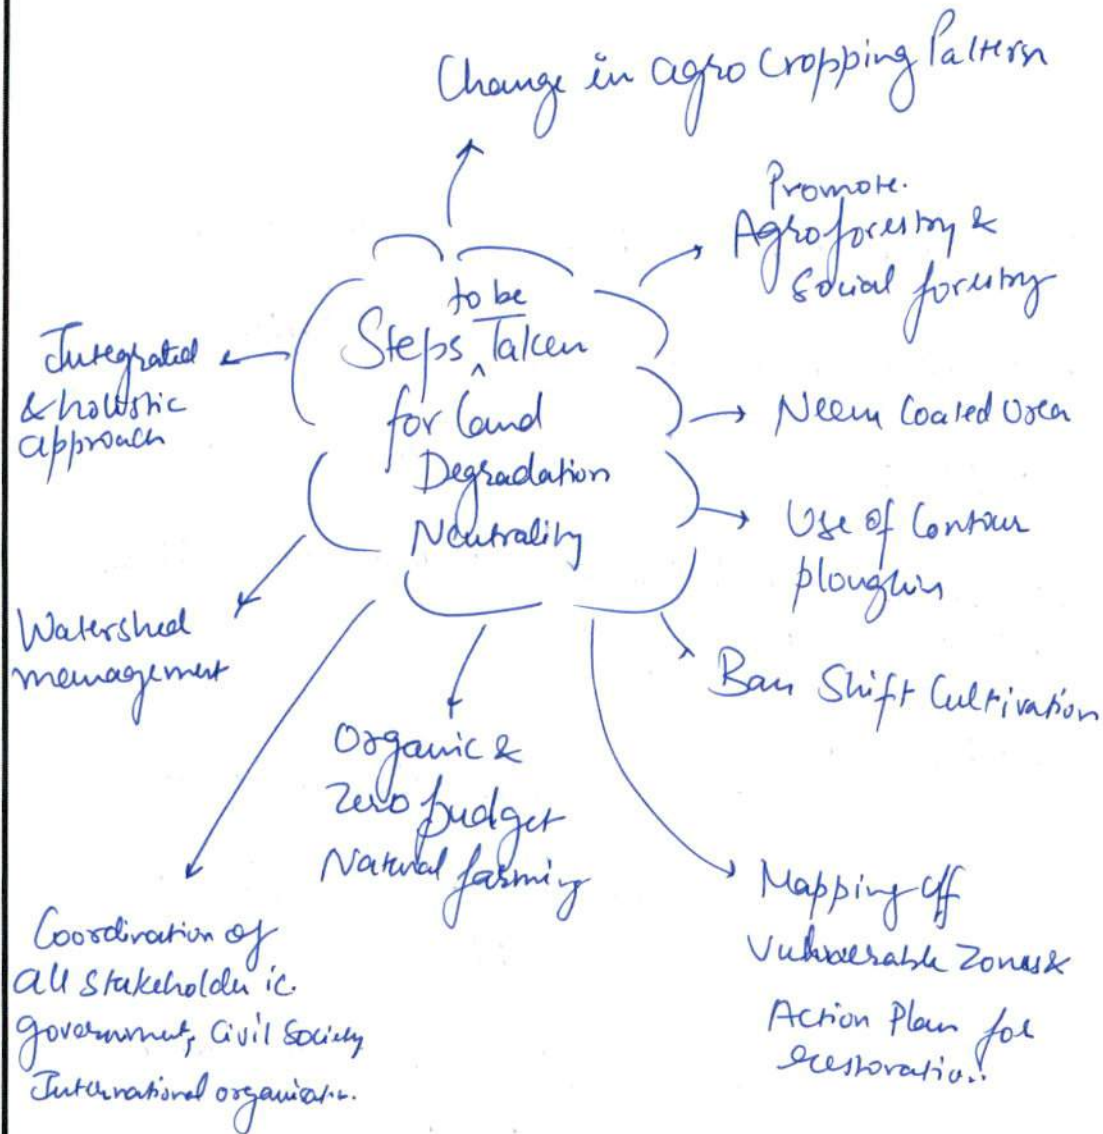 Change in agro Cropping Pattern
Promote.
Agroforestry &
Social forestry
to be
Steps ^ Taken
for Land
Degradation
Neutrality
Integrated
& holistic
approach
Neem Coated Urea
Use of Contour
ploughin
Ban Shift Cultivation
Watershed
management
Organic &
Zero budget
Natural farming
Mapping off
Vulnerable Zones &
Action Plan for
restoration.
Coordination of
all Stakeholder ie.
government, Civil Society
International organisation.